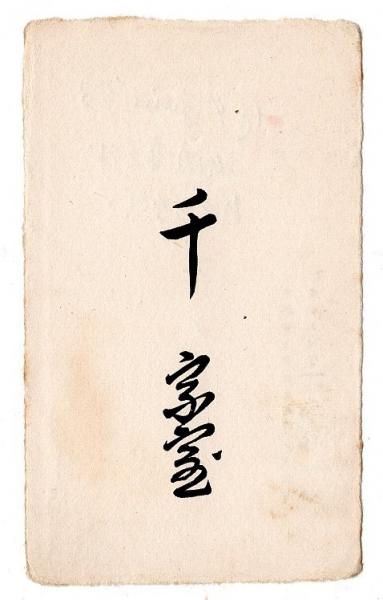 千宗室